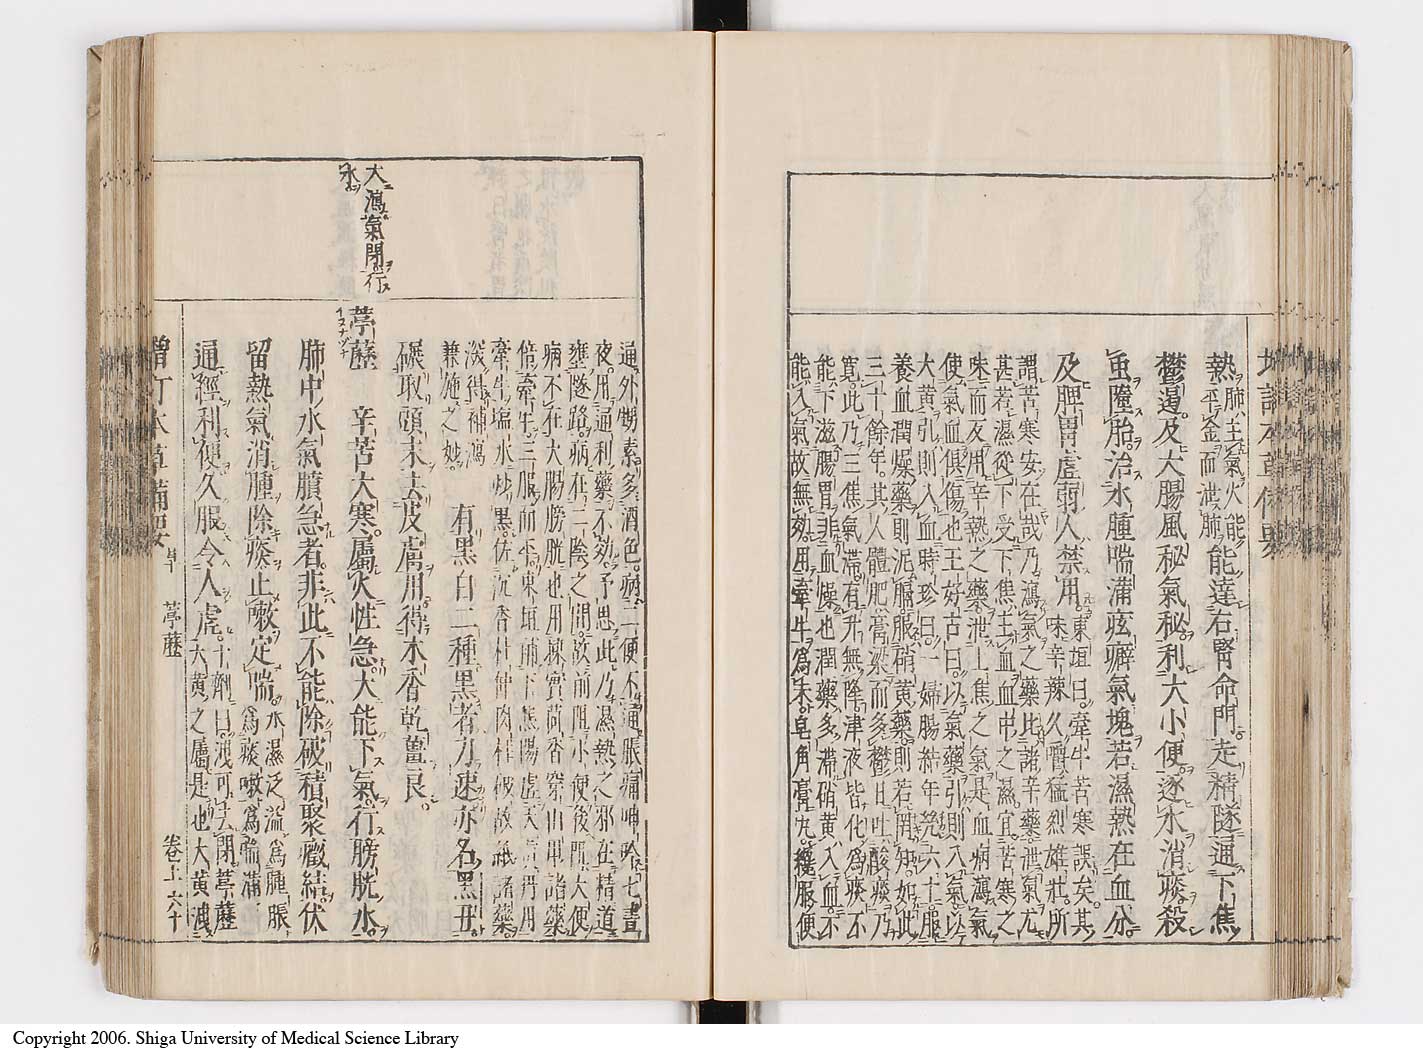 増訂本草備要
熱 肺主氣火能平金而泄肺 能達右腎命門。走精隧通下焦
鬱遏及大腸風秘氣秘。利大小便。逐水消痰。殺
虫墮胎。治水腫喘滿痃癖氣塊若濕熱在血分
及脾胃虛弱人禁用。 東垣曰。牽牛苦寒誤矣。其味辛辣久嚼猛烈雄壯。所
謂苦寒安在哉。乃瀉氣之藥比諸辛藥。泄氣尤
甚若濕從下受下焦主血血中之濕宜苦寒之
味而反用辛熱之藥泄上焦之氣是血病瀉氣
使氣血俱傷也王好古曰。以氣藥引則入氣。以
大黃引則入血時珍曰。一婦腸結年幾六十。服
養血潤燥藥則泥膈。服硝黃藥則若罔知。如此
三十餘年。其人體肥膏粱而多鬱日吐酸痰乃
寬。此乃三焦氣滯。有升無降津液皆化為痰不
能下滋腸胃非血燥也潤藥多滯硝黃入血。不
能入氣故無効。用牽牛為末。皂角膏丸。纔服便
通外甥素多酒色。病二便不通脹痛呻吟七晝
夜。用通利藥不効。予思此乃濕熱之邪在精道
壅隧路。病在二陰之間。故前阻小便後阻大便
病不在大腸膀胱也用楝實茴香穿山甲諸藥
倍牽牛三服而平。東垣補下焦陽虛天真丹用
牽牛塩水炒黑。佐沉香杜仲肉桂破故紙諸藥
深得補瀉
兼施之妙 有黑白二種黑者力速亦名黑丑。
碾取頭末去皮膚用。得木香乾薑良。
大瀉氣閉行
水
葶藶 イヌナヅナ 辛苦大寒。屬火性急。大能下氣。行膀胱水。
肺中水氣膹急者。非此不能除破積聚癥結伏
留熱氣消腫除痰止嗽定喘。 水濕泛溢為腫脹為痰嗽為喘滿
通經利便久服令人虛。 十劑曰。洩可去閉。葶藶大黃之屬是也大黃洩
增訂本草備要 葶藶 卷上 六十
Copyright 2006. Shiga University of Medical Science Library